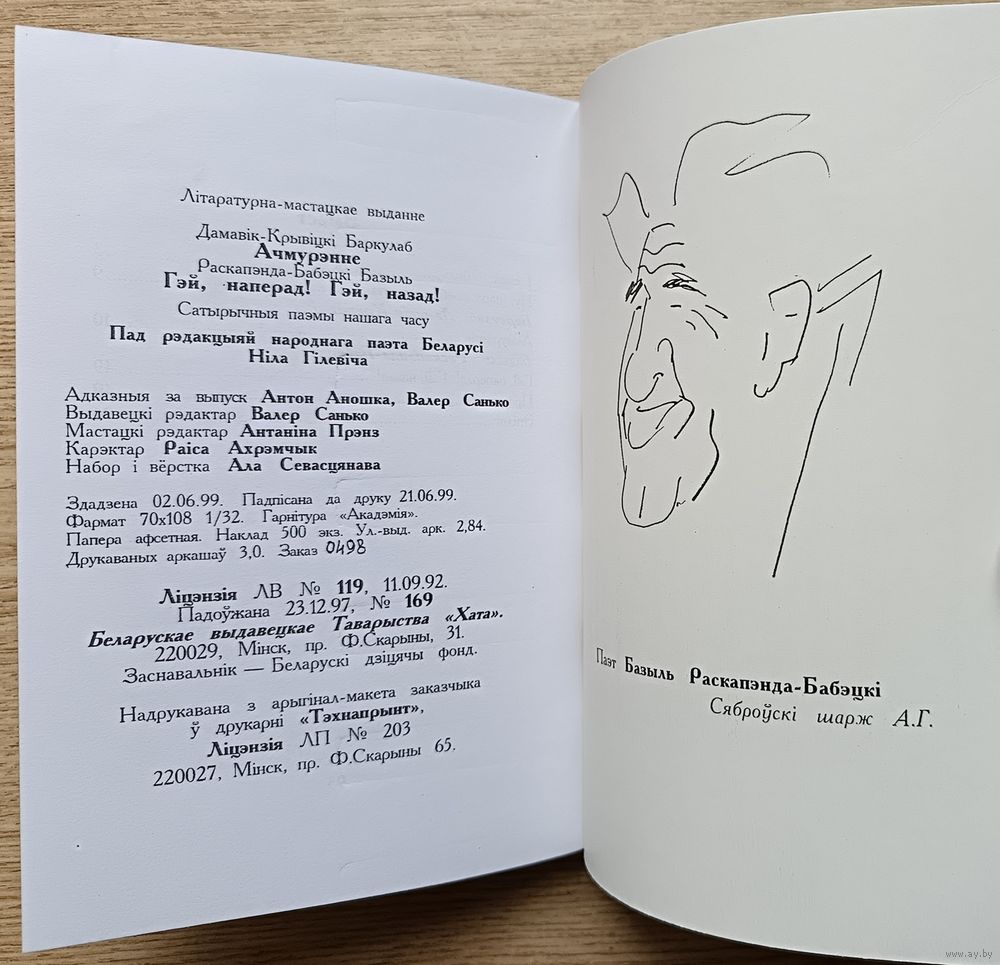 Літаратурна-мастацкае выданне
Дамавік-Крывіцкі Баркулаб
Ачмурэнне
Раскапэнда-Бабэцкі Базыль
Гэй, наперад! Гэй, назад!
Сатырычныя паэмы нашага часу
Пад рэдакцыяй народнага паэта Беларусі
Ніла Гілевіча
Адказныя за выпуск Антон Аношка, Валер Санько
Выдавецкі рэдактар Валер Санько
Мастацкі рэдактар Антаніна Прэнз
Карэктар Раіса Ахрэмчык
Набор і вёрстка Ала Севасцянава
Здадзена 02.06.99. Падпісана да друку 21.06.99.
Фармат 70х108 1/32. Гарнітура «Акадэмія».
Папера афсетная. Наклад 500 экз. Ул.-выд. арк. 2,84.
Друкаваных аркашаў 3,0. Заказ 0498
Ліцэнзія ЛВ № 119, 11.09.92.
Падоўжана 23.12.97, № 169
Беларускае выдавецкае Таварыства «Хата».
220029, Мінск, пр. Ф.Скарыны, 31.
Заснавальнік — Беларускі дзіцячы фонд.
Надрукавана з арыгінал-макета заказчыка
ў друкарні «Тэхнапрынт»,
Ліцэнзія ЛП № 203
220027, Мінск, пр. Ф.Скарыны 65.
Паэт Базыль Раскапэнда-Бабэцкі
Сяброўскі шарж А.Г.
www.ay.by